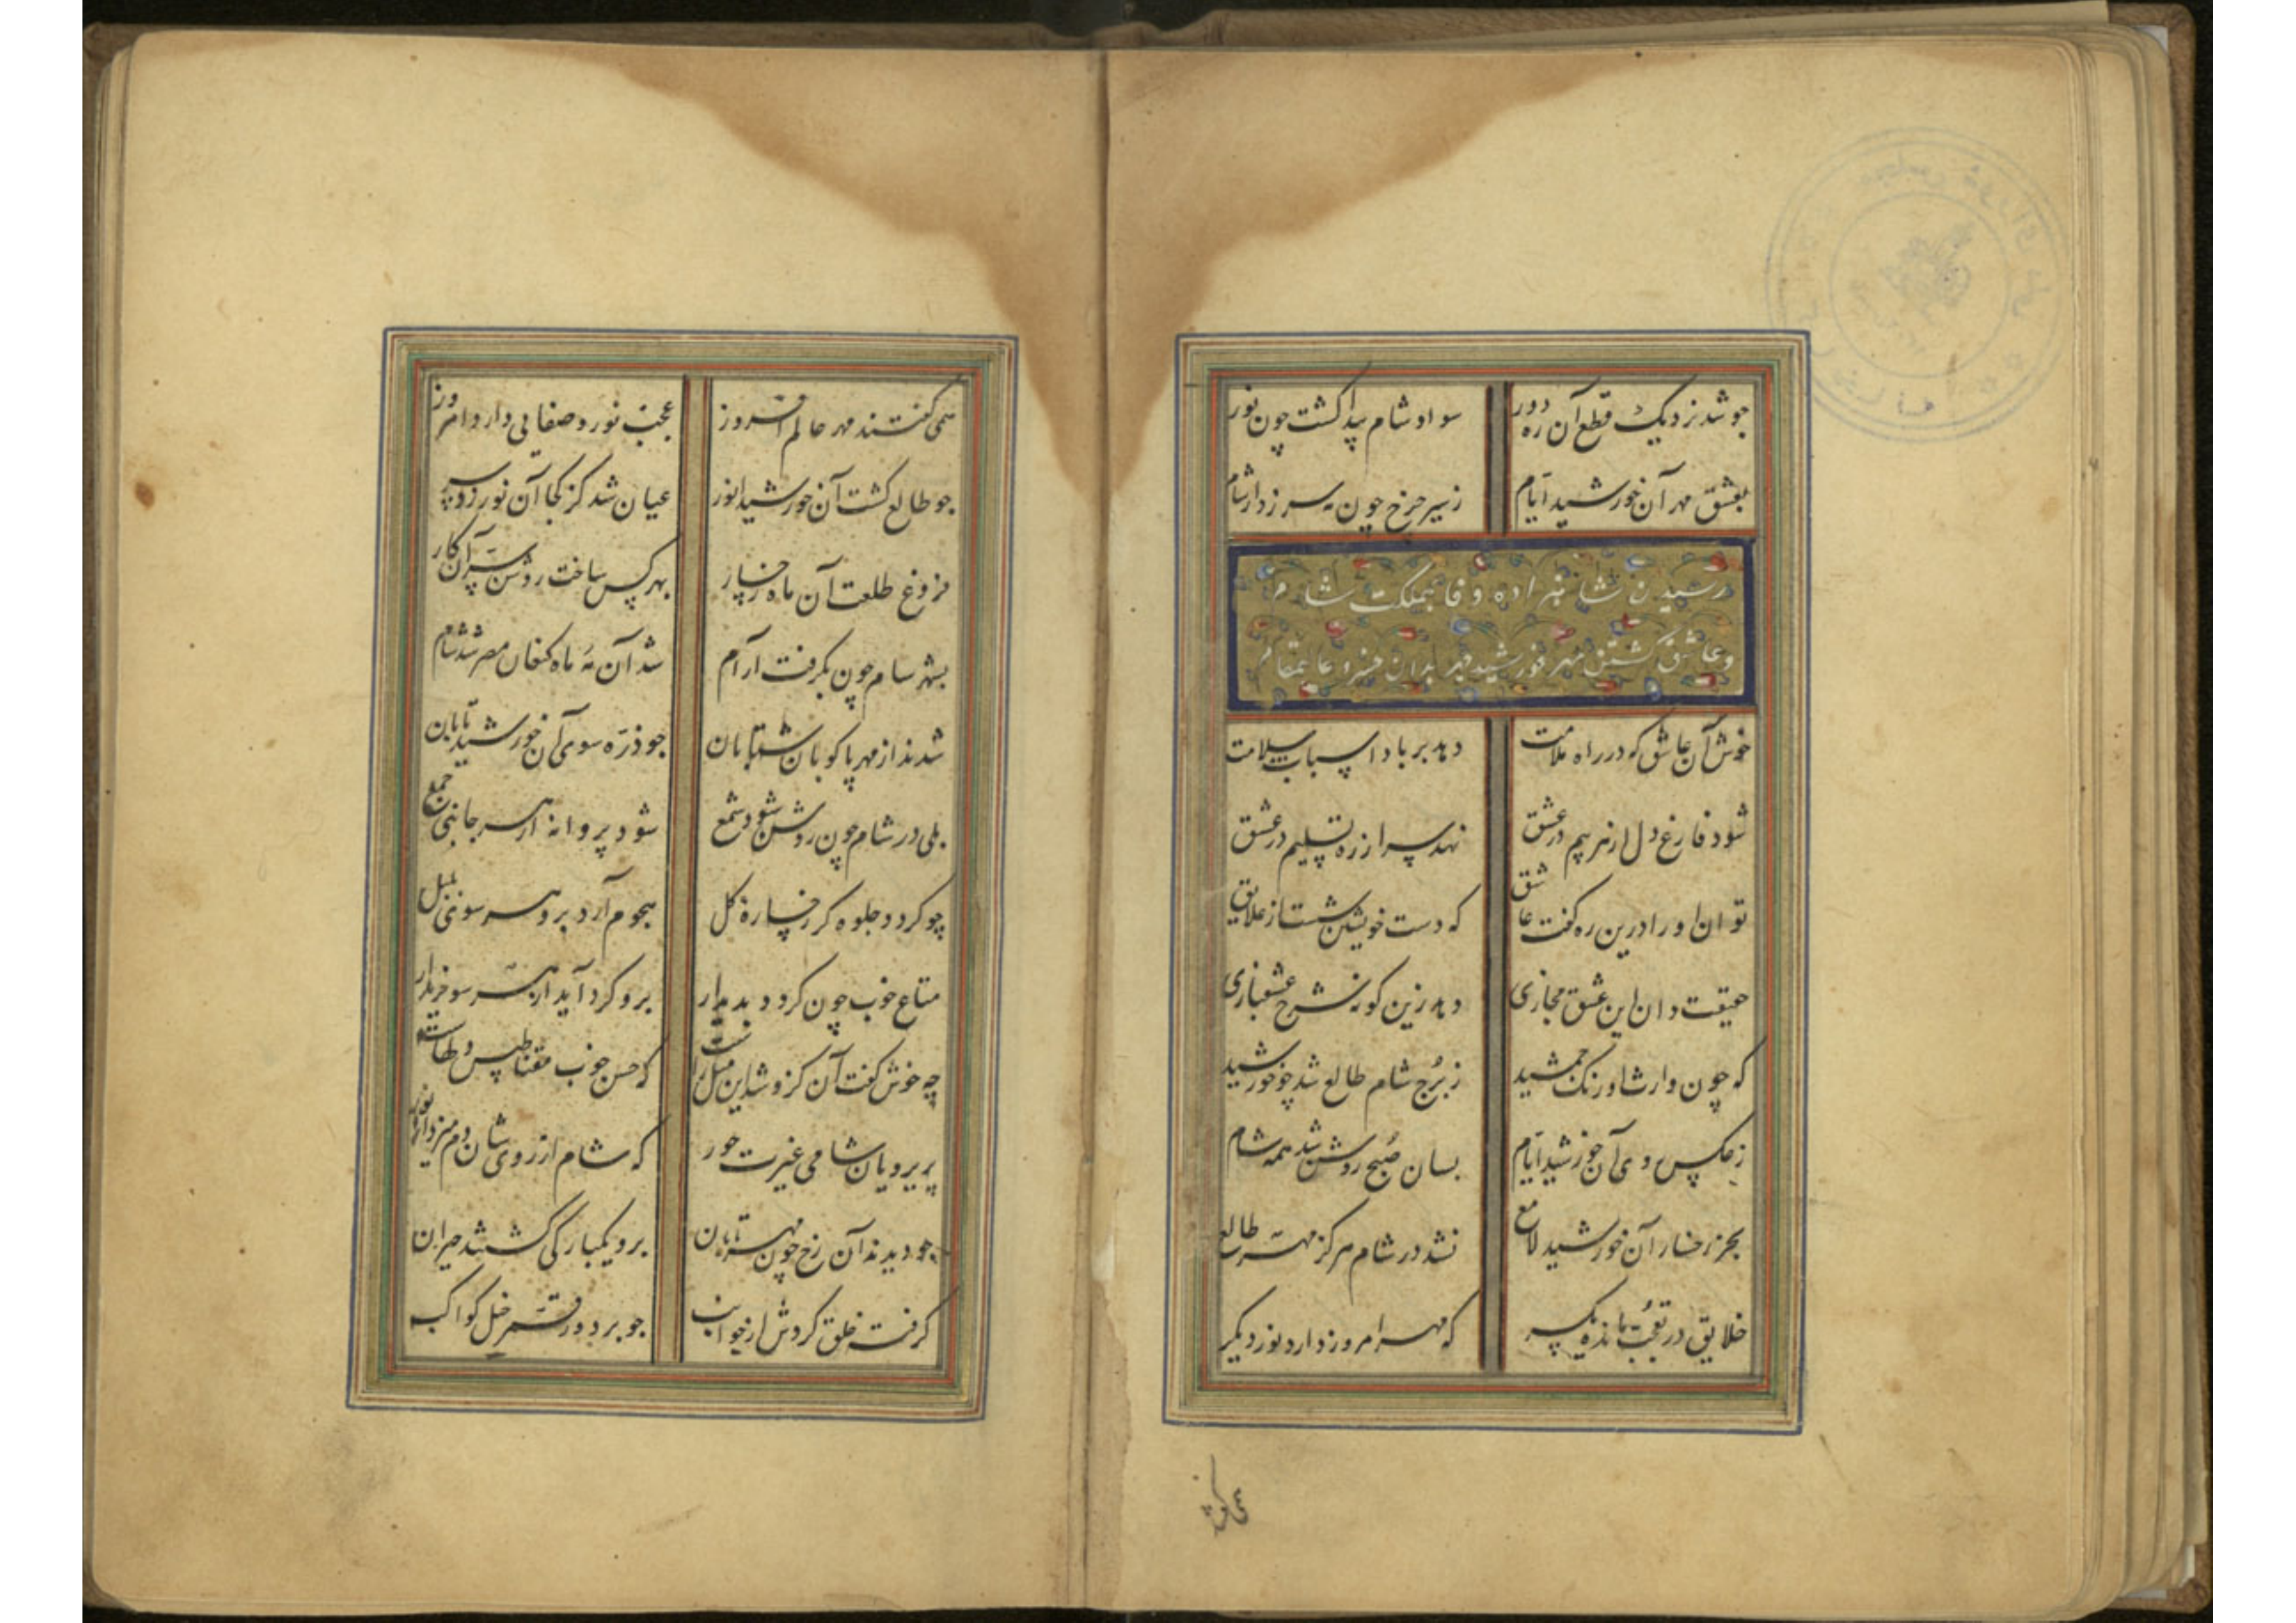 چو شد نزدیک قطع آن ره دور سواد شام پیدا گشت چون نور
بعشق مهر آن خورشید ایام زسیر چرخ چون مه سر زد از شام
رسیدن شاهزاده وفا بمملکت شام
و عاشق گشتن مهر خورشید چهر بدان خسرو عالیمقام
خوش آن عاشق که در راه ملامت دهد بر باد اسباب سلامت
شود فارغ دل از هر بیم در عشق نهد سر از ره تسلیم در عشق
توان او را درین ره گفت عاشق که دست خویشتن شست از علایق
حقیقت دان این عشق مجازی دهد زین کونه شرح عشقبازی
که چون وارث اورنک جمشید ز برج شام طالع شد چو خورشید
ز عکس روی آن خورشید ایام بسان صبح روشن شد همه شام
بجز رخسار آن خورشید لامع نشد در شام هرکز مهر طالع
خلایق در تعجب مانده یکسر که مهر امروز دارد نور دیکر
همی کفتند
همی کفتند مهر عالم افروز عجب نور و صفایی دارد امروز
چو طالع کشت آن خورشید انور عیان شد کز کجا آن نور زد سر
فروغ طلعت آن ماه رخسار بهر کس ساخت روشن سر آن کار
بشهر شام چون بکرفت آرام شد آن مه ماه کنعان مصر شد شام
شدند از مهر پاکوبان شتابان چو ذره سوی آن خورشید تابان
بلی در شام چون روشن شود شمع شود پروانه از هر جانبی جمع
چو کردد جلوه کر رخساره کل هجوم آرد برو هر سو بلبل
متاع خوب چون کردد پدیدار برو کرد آید از هر سو خریدار
چه خوش گفت آن کزو شد این مثل راست که حسن خوب مقناطیس دلهاست
پریرویان شامی غیرت حور که شام از روی شان دم میزد از نور
چو دیدند آن رخ چون مهر تابان برو یکبارگی کشتند حیران
کرفت خلق کردش از جوانب چو بر دور قمر خیل کواکب